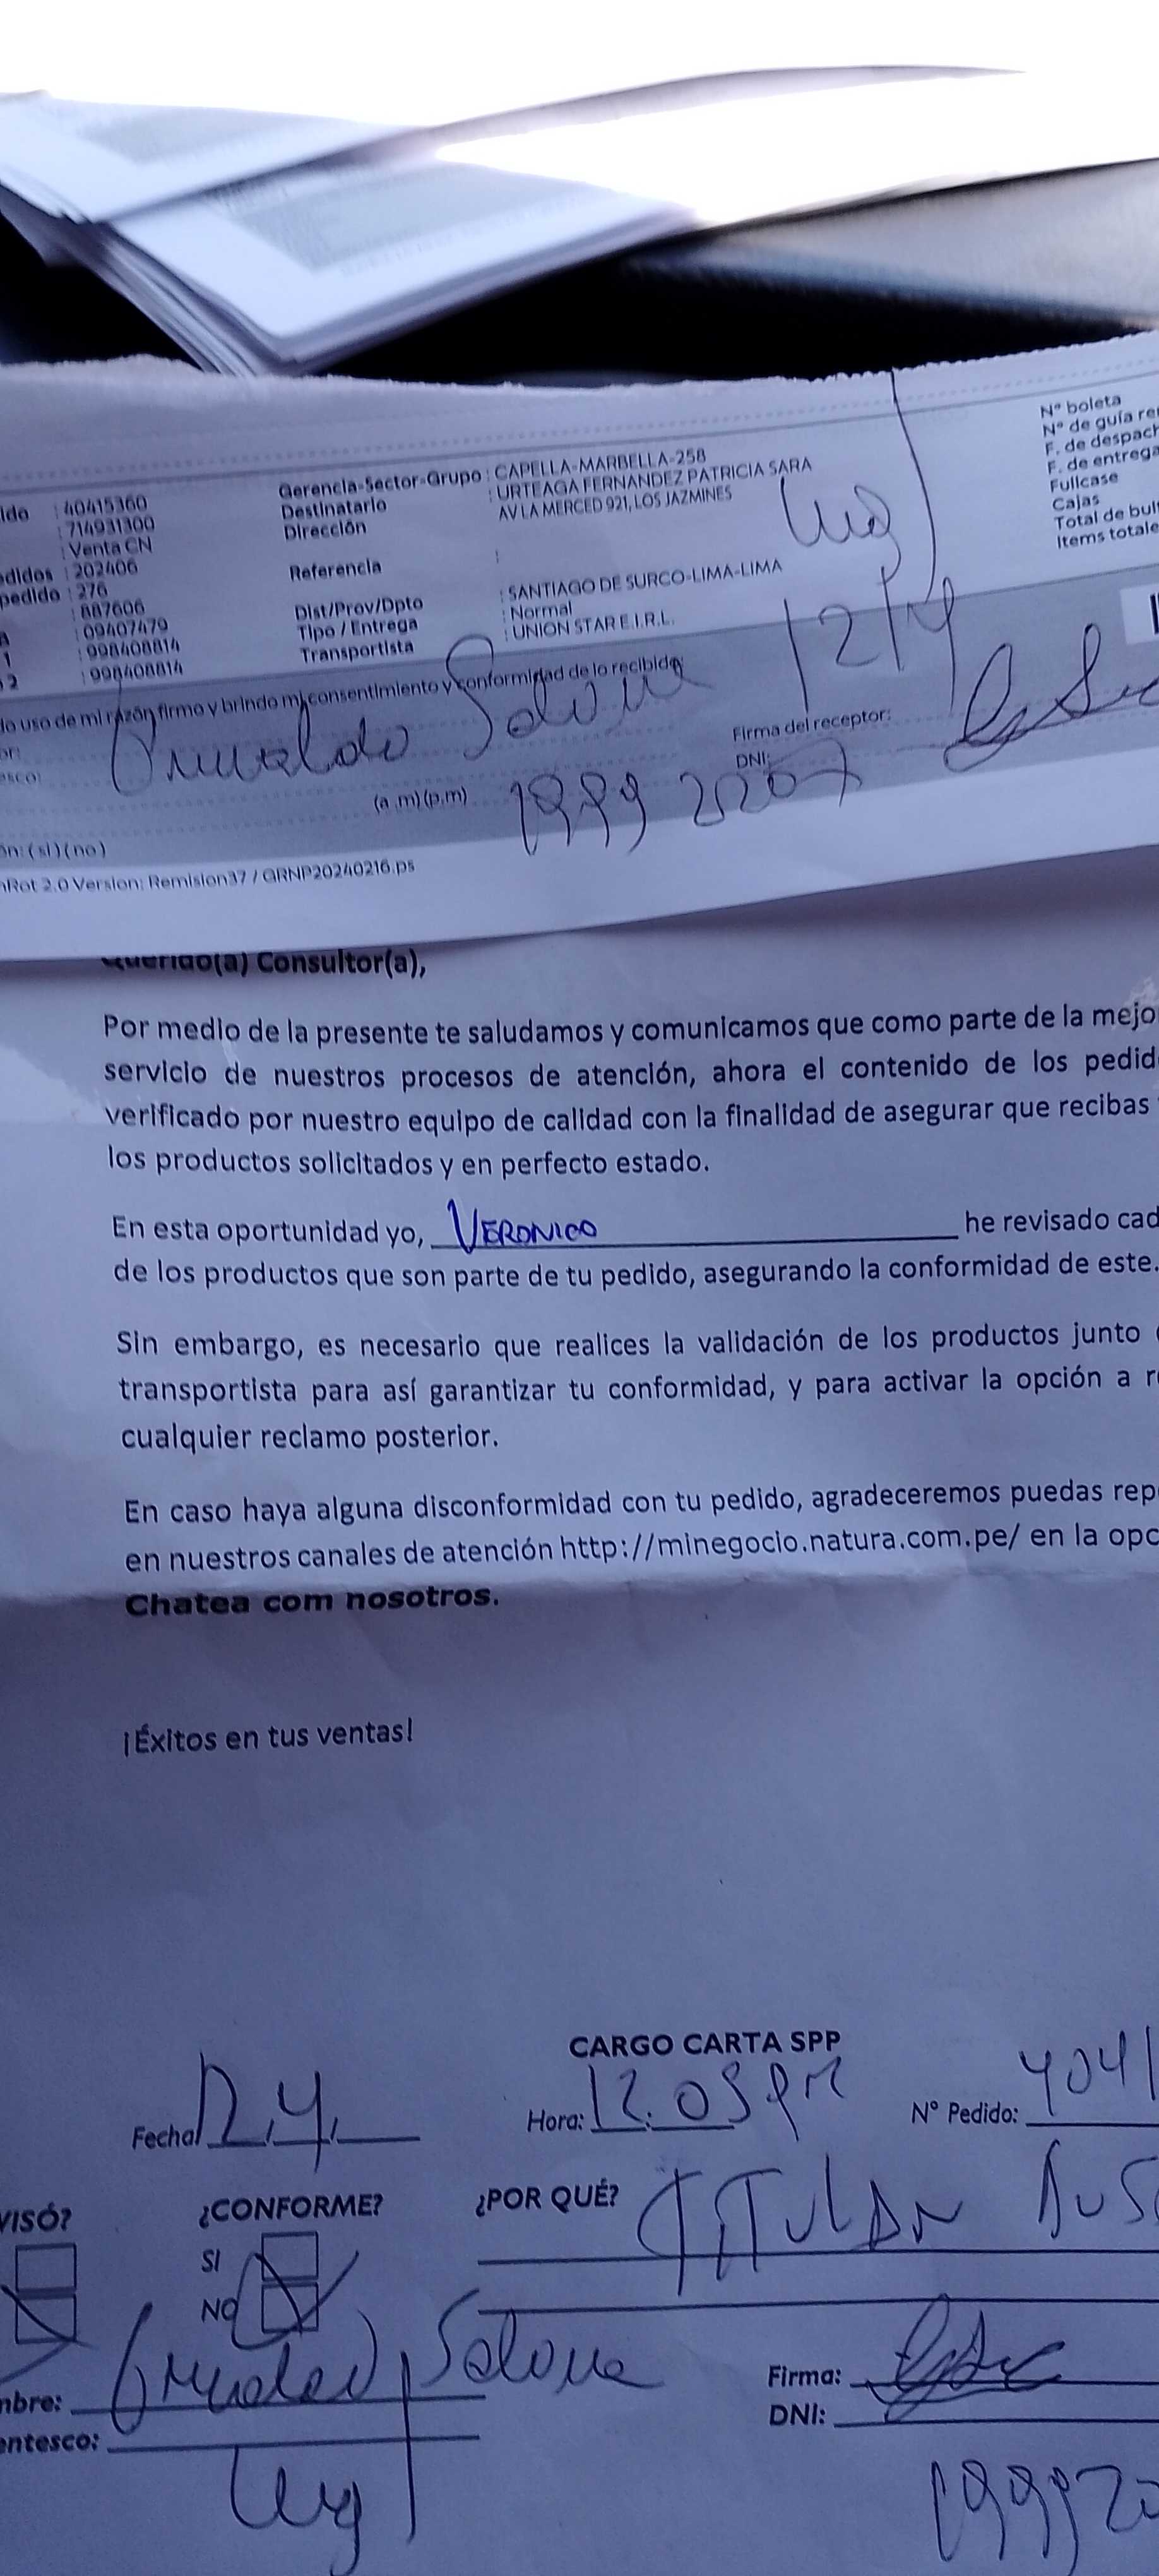 ido : 40415360
: 714931300
: Venta CN
didos : 202406
pedido : 276
: 887606
: 09407479
1 : 998408814
2 : 998408814
Gerencia-Sector-Grupo : CAPELLA-MARBELLA-258
Destinatario : URTEAGA FERNANDEZ PATRICIA SARA
Dirección AV LA MERCED 921, LOS JAZMINES
Referencia :
Dist/Prov/Dpto : SANTIAGO DE SURCO-LIMA-LIMA
Tipo / Entrega : Normal
Transportista : UNION STAR E.I.R.L.
N° boleta
N° de guía re
F. de despach
F. de entrega
Fullcase
Cajas
Total de bul
Items totale
do uso de mi razón firmo y brindo mi consentimiento y conformidad de lo recibido:
or:
esco:
Firma del receptor:
DNI:
(a .m) (p.m)
ón: ( si ) ( no )
Rot 2.0 Version: Remision37 / GRNP20240216.ps
Querido(a) Consultor(a),
Por medio de la presente te saludamos y comunicamos que como parte de la mejo
servicio de nuestros procesos de atención, ahora el contenido de los pedid
verificado por nuestro equipo de calidad con la finalidad de asegurar que recibas
los productos solicitados y en perfecto estado.
En esta oportunidad yo, VERONICA he revisado cad
de los productos que son parte de tu pedido, asegurando la conformidad de este.
Sin embargo, es necesario que realices la validación de los productos junto
transportista para así garantizar tu conformidad, y para activar la opción a r
cualquier reclamo posterior.
En caso haya alguna disconformidad con tu pedido, agradeceremos puedas rep
en nuestros canales de atención http://minegocio.natura.com.pe/ en la opc
Chatea com nosotros.
¡Éxitos en tus ventas!
CARGO CARTA SPP
Fecha Hora: 12.05 PM N° Pedido: 4041
VISÓ? ¿CONFORME? ¿POR QUÉ? TITULAR AUS
SI
NO
mbre: Firma:
entesco: DNI: